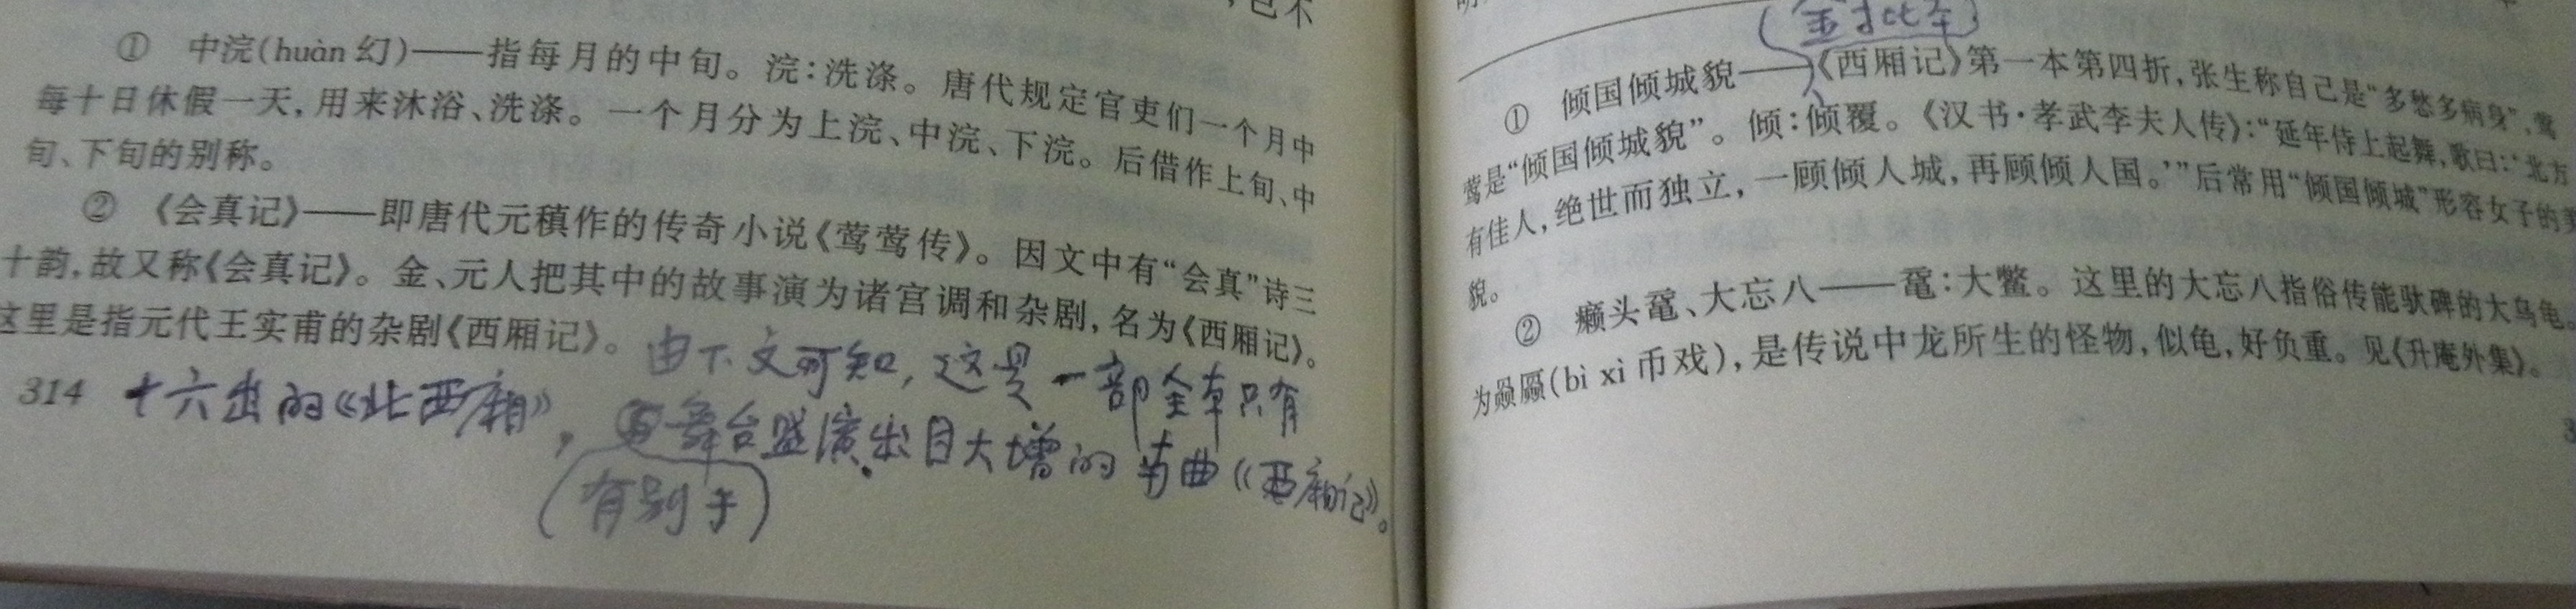 ，也不
① 中浣(huàn 幻)——指每月的中旬。浣：洗涤。唐代规定官吏们一个月中
每十日休假一天，用来沐浴、洗涤。一个月分为上浣、中浣、下浣。后借作上旬、中
旬、下旬的别称。
② 《会真记》——即唐代元稹作的传奇小说《莺莺传》。因文中有“会真”诗三
十韵，故又称《会真记》。金、元人把其中的故事演为诸宫调和杂剧，名为《西厢记》。
这里是指元代王实甫的杂剧《西厢记》。
由下文可知，这是一部全本只有
314
十六出的《北西厢》，
舞台盛演出目大增的南曲《西厢记》。
(有别于)
(金批本)
① 倾国倾城貌——《西厢记》第一本第四折，张生称自己是“多愁多病身”，莺
莺是“倾国倾城貌”。倾：倾覆。《汉书·孝武李夫人传》：“延年侍上起舞，歌曰：‘北方
有佳人，绝世而独立，一顾倾人城，再顾倾人国。’”后常用“倾国倾城”形容女子的美
貌。
② 癞头鼋、大忘八——鼋：大鳖。这里的大忘八指俗传能驮碑的大乌龟，
为赑屃(bì xì 币戏)，是传说中龙所生的怪物，似龟，好负重。见《升庵外集》。
3